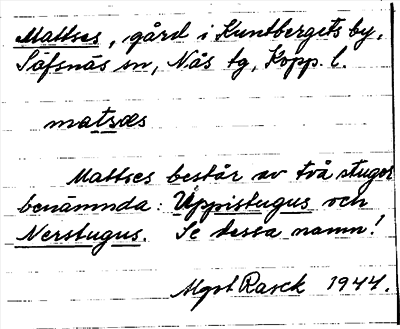 Mattses, gård i Kuntbergets by,
Säfsnäs sn, Nås tg, Kopp. l.
matsæs
Mattses består av två stugor
benämnda: Uppistugus och
Nerstugus. Se dessa namn!
Mgt Rasck 1944.